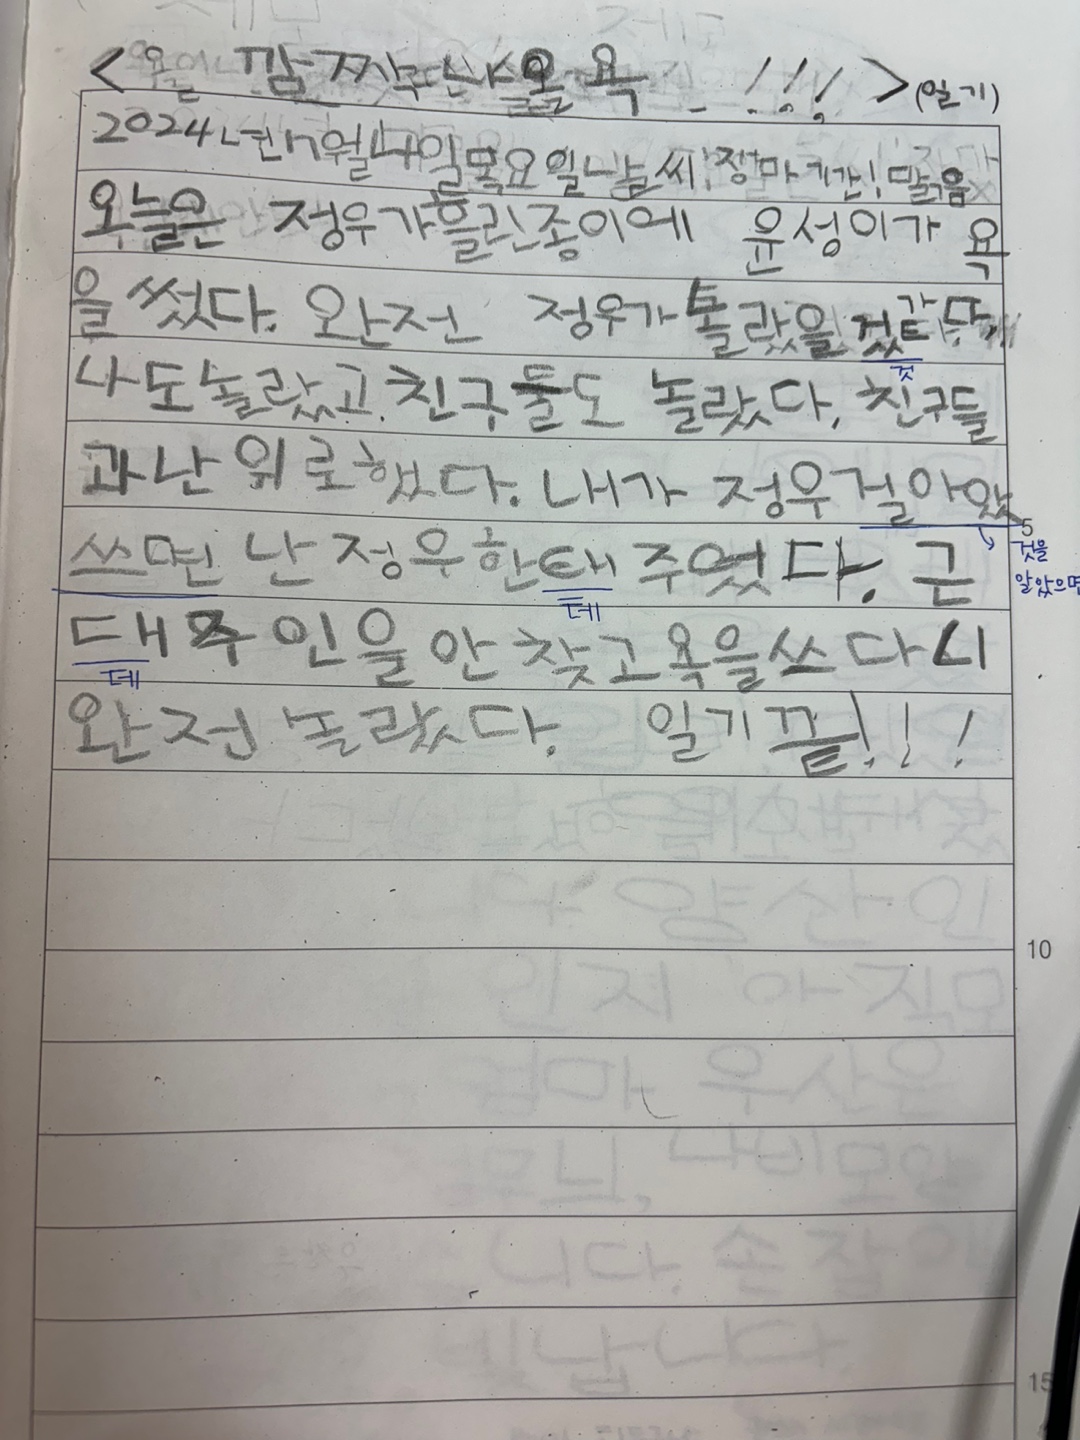 < 깜짝 놀욕 !!! > (일기)
2024년 7월 4일 목요일 날씨: 장마기간! 맑음
오늘은 정우가 흘린 종이에 윤성이가 욕
을 썼다. 완전 정우가 놀랐을 겄같다.
것
나도 놀랐고, 친구들도 놀랐다. 친구들
과 난 위로했다. 내가 정우걸 아랐
쓰면 난 정우한태 주었다. 근
것을
알았으면
테
대 주인을 안 찾고 욕을 쓰다니
데
완전 놀랐다. 일기 끝!!!
5
10
15